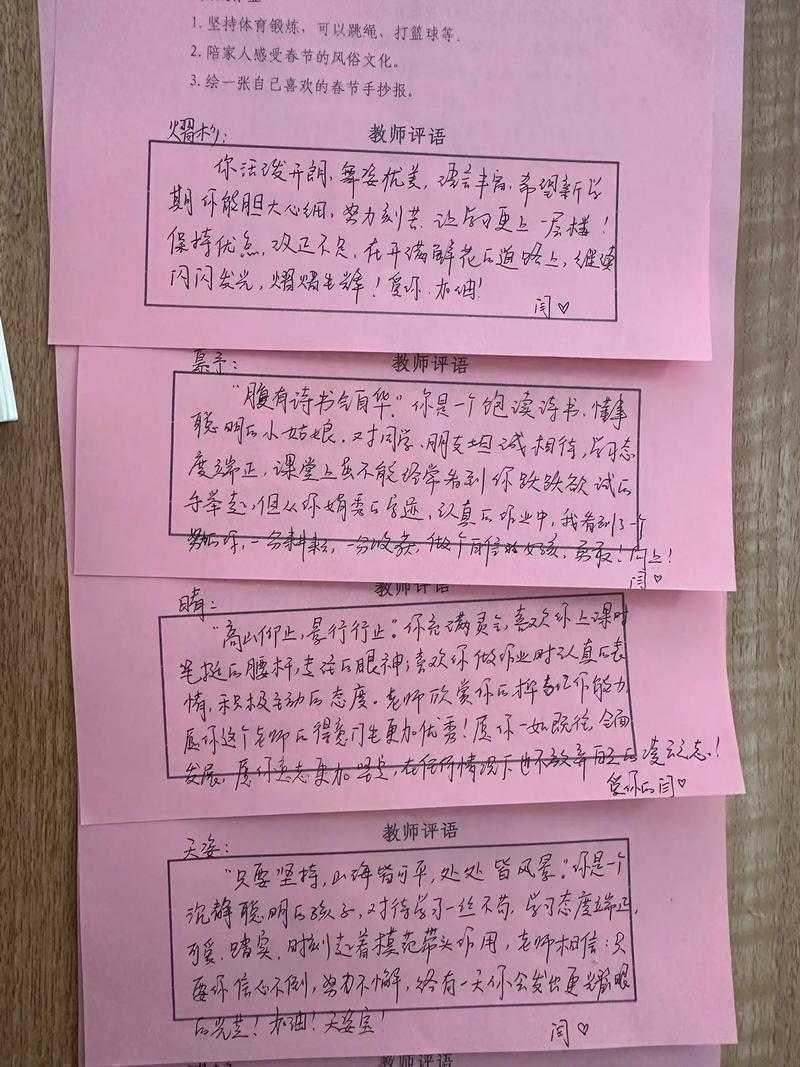 1. 坚持体育锻炼，可以跳绳、打篮球等。
2. 陪家人感受春节的风俗文化。
3. 绘一张自己喜欢的春节手抄报。
教师评语
熠杉：
你活泼开朗，舞姿优美，语言丰富，希望新学
期你能胆大心细，努力刻苦，让学习更上一层楼！
保持优点，改正不足，在开满鲜花的道路上，继续
闪闪发光，熠熠生辉！爱你，加油！
闫♡
教师评语
慕予：
“腹有诗书气自华。”你是一个饱读诗书、懂事
聪明的小姑娘。对同学、朋友坦诚相待，学习态
度端正，课堂上虽不能经常看到你跃跃欲试的
手举起，但从你娟秀的字迹，认真的作业中，我看到了一个
努力的你，一分耕耘，一分收获，做个自信的女孩，勇敢！向上！
闫♡
教师评语
晴：
“高山仰止，景行行止”。你充满灵气，喜欢你上课时
笔挺的腰杆，专注的眼神；喜欢你做作业时认真的表
情，积极主动的态度。老师欣赏你的组织能力
愿你这个老师的得意门生更加优秀！愿你一如既往，全面
发展，愿你意志更加坚定，在任何情况下也不放弃的凌云之志！
爱你的闫♡
教师评语
天姿：
“只要坚持，山海皆可平，处处皆风景。”你是一个
沉静聪明的孩子，对待学习一丝不苟，学习态度端正，
可爱、踏实，时刻起着模范带头作用，老师相信：只
要你信心不倒，努力不懈，终有一天你会发出更耀眼
的光芒！加油！天姿宝！
闫♡
教师评语